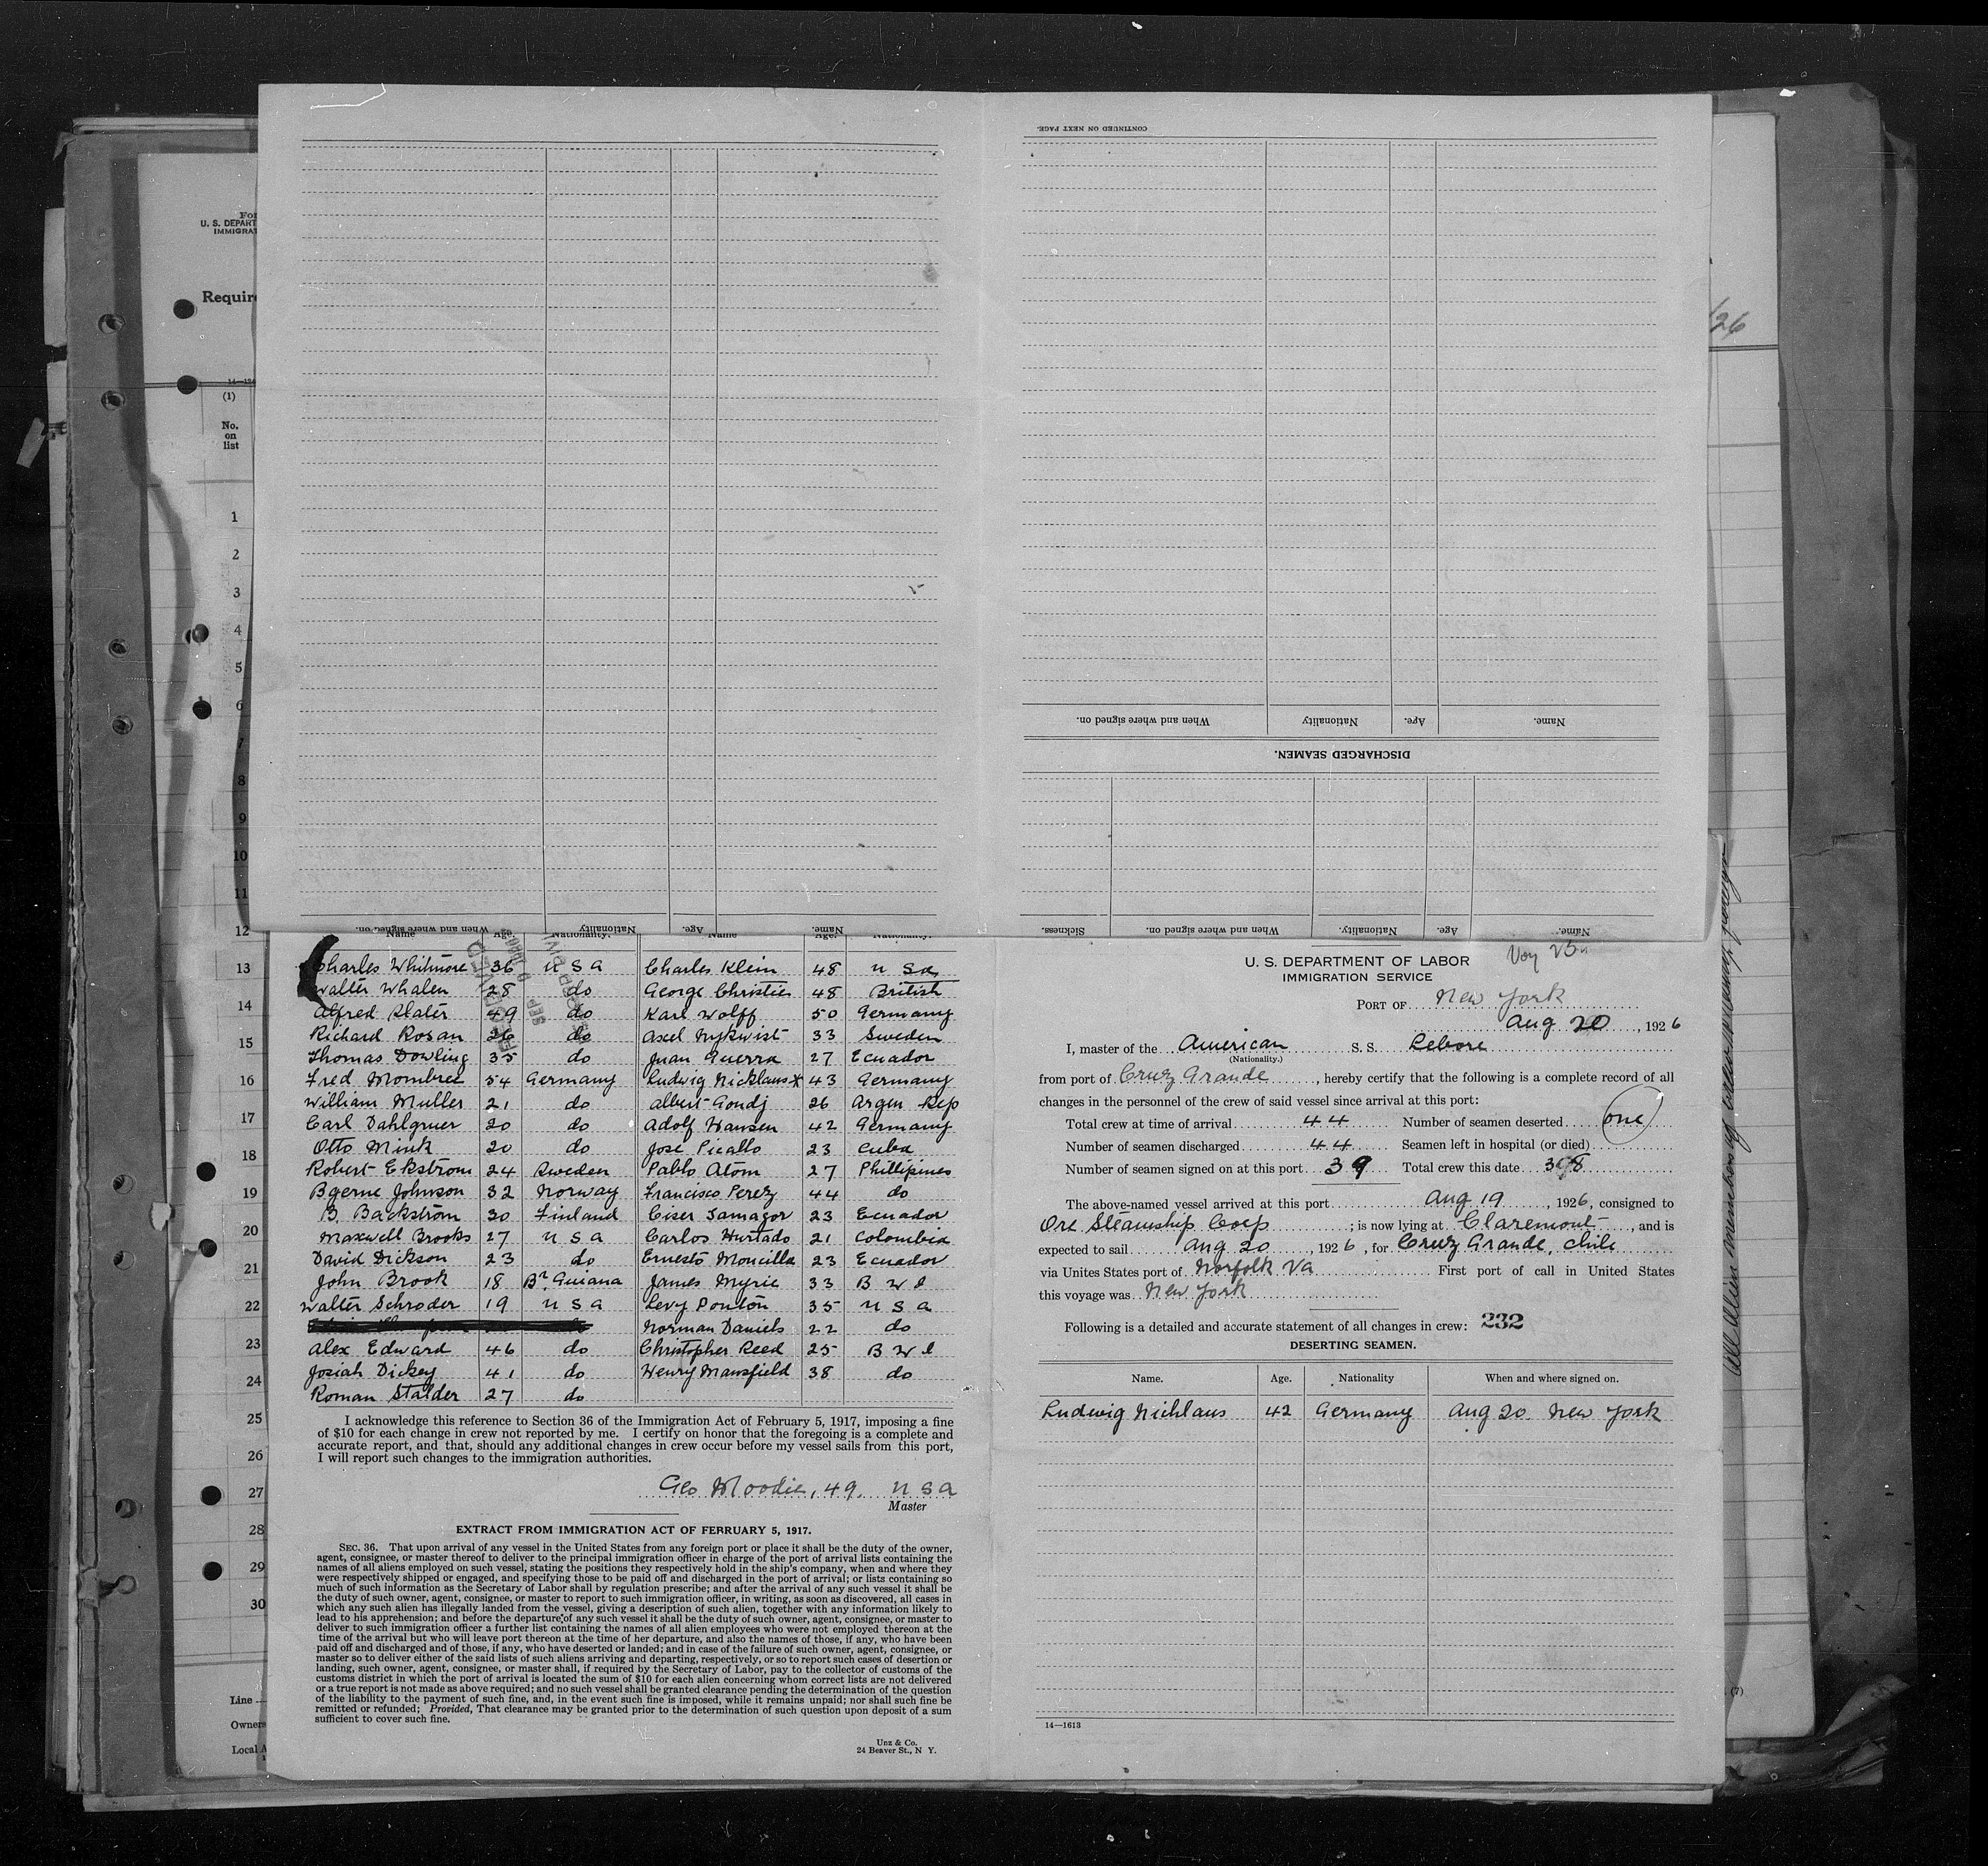 CONTINUED ON NEXT PAGE.
Name.
Age.
Nationality
When and where signed on.
DISCHARGED SEAMEN.
Name.
Age.
Nationality.
When and where signed on.
Sickness.
Name.
Age.
Nationality
When and where signed on.
U. S. DEPART
IMMIGRAT
Require
(1)
No.
on
list
1
2
3
4
5
6
7
8
9
10
11
12
13
14
15
16
17
18
19
20
21
22
23
24
25
26
27
28
29
30
Line
Owners
Local A
/26
(7)
Name Age. Nationality. Name Age. Nationality.
Charles Whitmore 36 U S A Charles Klein 48 U S A
Walter Whalen 28 do George Christie 48 British
Alfred Slater 49 do Karl Wolff 50 Germany
Richard Rosan 26 do Axel Nykwist 33 Sweden
Thomas Dowling 35 do Juan Guerra 27 Ecuador
Fred Mombree 54 Germany Ludwig Nicklaus x 43 Germany
William Muller 21 do Albert Goudj 26 Argen Rep
Carl Dahlgruer 20 do Adolf Hansen 42 Germany
Otto Mink 20 do Jose Picallo 23 Cuba
Robert Ekstrom 24 Sweden Pablo Atom 27 Phillipines
Bgerne Johnson 32 Norway Francisco Perez 44 do
B. Backström 30 Finland Ciser Samagor 23 Ecuador
Maxwell Brooks 27 U S A Carlos Hurtado 21 Colombia
David Dickson 23 do Ernesto Moncilla 23 Ecuador
John Brook 18 Br Guiana James Myrie 33 B W I
Walter Schroder 19 U S A Levy Ponton 35 U S A
Norman Daniels 22 do
Alex Edward 46 do Christopher Reed 25 B W I
Josiah Dickey 41 do Henry Mansfield 38 do
Roman Stalder 27 do
I acknowledge this reference to Section 36 of the Immigration Act of February 5, 1917, imposing a fine
of $10 for each change in crew not reported by me. I certify on honor that the foregoing is a complete and
accurate report, and that, should any additional changes in crew occur before my vessel sails from this port,
I will report such changes to the immigration authorities.
Geo Moodie, 49. U S A
Master
EXTRACT FROM IMMIGRATION ACT OF FEBRUARY 5, 1917.
SEC. 36. That upon arrival of any vessel in the United States from any foreign port or place it shall be the duty of the owner,
agent, consignee, or master thereof to deliver to the principal immigration officer in charge of the port of arrival lists containing the
names of all aliens employed on such vessel, stating the positions they respectively hold in the ship's company, when and where they
were respectively shipped or engaged, and specifying those to be paid off and discharged in the port of arrival; or lists containing so
much of such information as the Secretary of Labor shall by regulation prescribe; and after the arrival of any such vessel it shall be
the duty of such owner, agent, consignee, or master to report to such immigration officer, in writing, as soon as discovered, all cases in
which any such alien has illegally landed from the vessel, giving a description of such alien, together with any information likely to
lead to his apprehension; and before the departure of any such vessel it shall be the duty of such owner, agent, consignee, or master to
deliver to such immigration officer a further list containing the names of all alien employees who were not employed thereon at the
time of the arrival but who will leave port thereon at the time of her departure, and also the names of those, if any, who have been
paid off and discharged and of those, if any, who have deserted or landed; and in case of the failure of such owner, agent, consignee, or
master so to deliver either of the said lists of such aliens arriving and departing, respectively, or so to report such cases of desertion or
landing, such owner, agent, consignee, or master shall, if required by the Secretary of Labor, pay to the collector of customs of the
customs district in which the port of arrival is located the sum of $10 for each alien concerning whom correct lists are not delivered
or a true report is not made as above required; and no such vessel shall be granted clearance pending the determination of the question
of the liability to the payment of such fine, and, in the event such fine is imposed, while it remains unpaid; nor shall such fine be
remitted or refunded; Provided, That clearance may be granted prior to the determination of such question upon deposit of a sum
sufficient to cover such fine.
Unz & Co.
24 Beaver St., N Y.
Voy 23
U. S. DEPARTMENT OF LABOR
IMMIGRATION SERVICE
PORT OF New York
Aug 20, 1926
I, master of the American S. S. Lebore
(Nationality.)
from port of Cruz Grande, hereby certify that the following is a complete record of all
changes in the personnel of the crew of said vessel since arrival at this port:
Total crew at time of arrival 44 Number of seamen deserted one
Number of seamen discharged 44 Seamen left in hospital (or died)
Number of seamen signed on at this port 39 Total crew this date 398
The above-named vessel arrived at this port Aug 19, 1926, consigned to
Ore Steamship Corp; is now lying at Claremont, and is
expected to sail Aug 20, 1926, for Cruz Grande, Chile
via Unites States port of Norfolk Va First port of call in United States
this voyage was New York
Following is a detailed and accurate statement of all changes in crew: 232
DESERTING SEAMEN.
Name. Age. Nationality When and where signed on.
Ludwig Nichlaus 42 Germany Aug 20 New York
14—1613